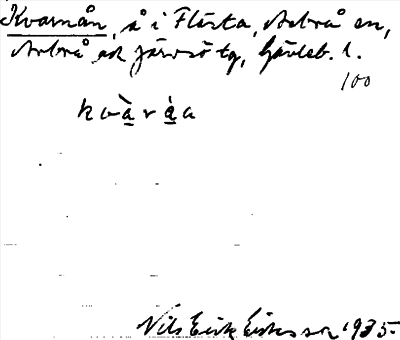 Kvarnån, å i Flästa, Arbrå sn,
Arbrå och Järvsö tg, Gävleb. l.
100
kvàràa
Nils Erik Eriksson 1935.